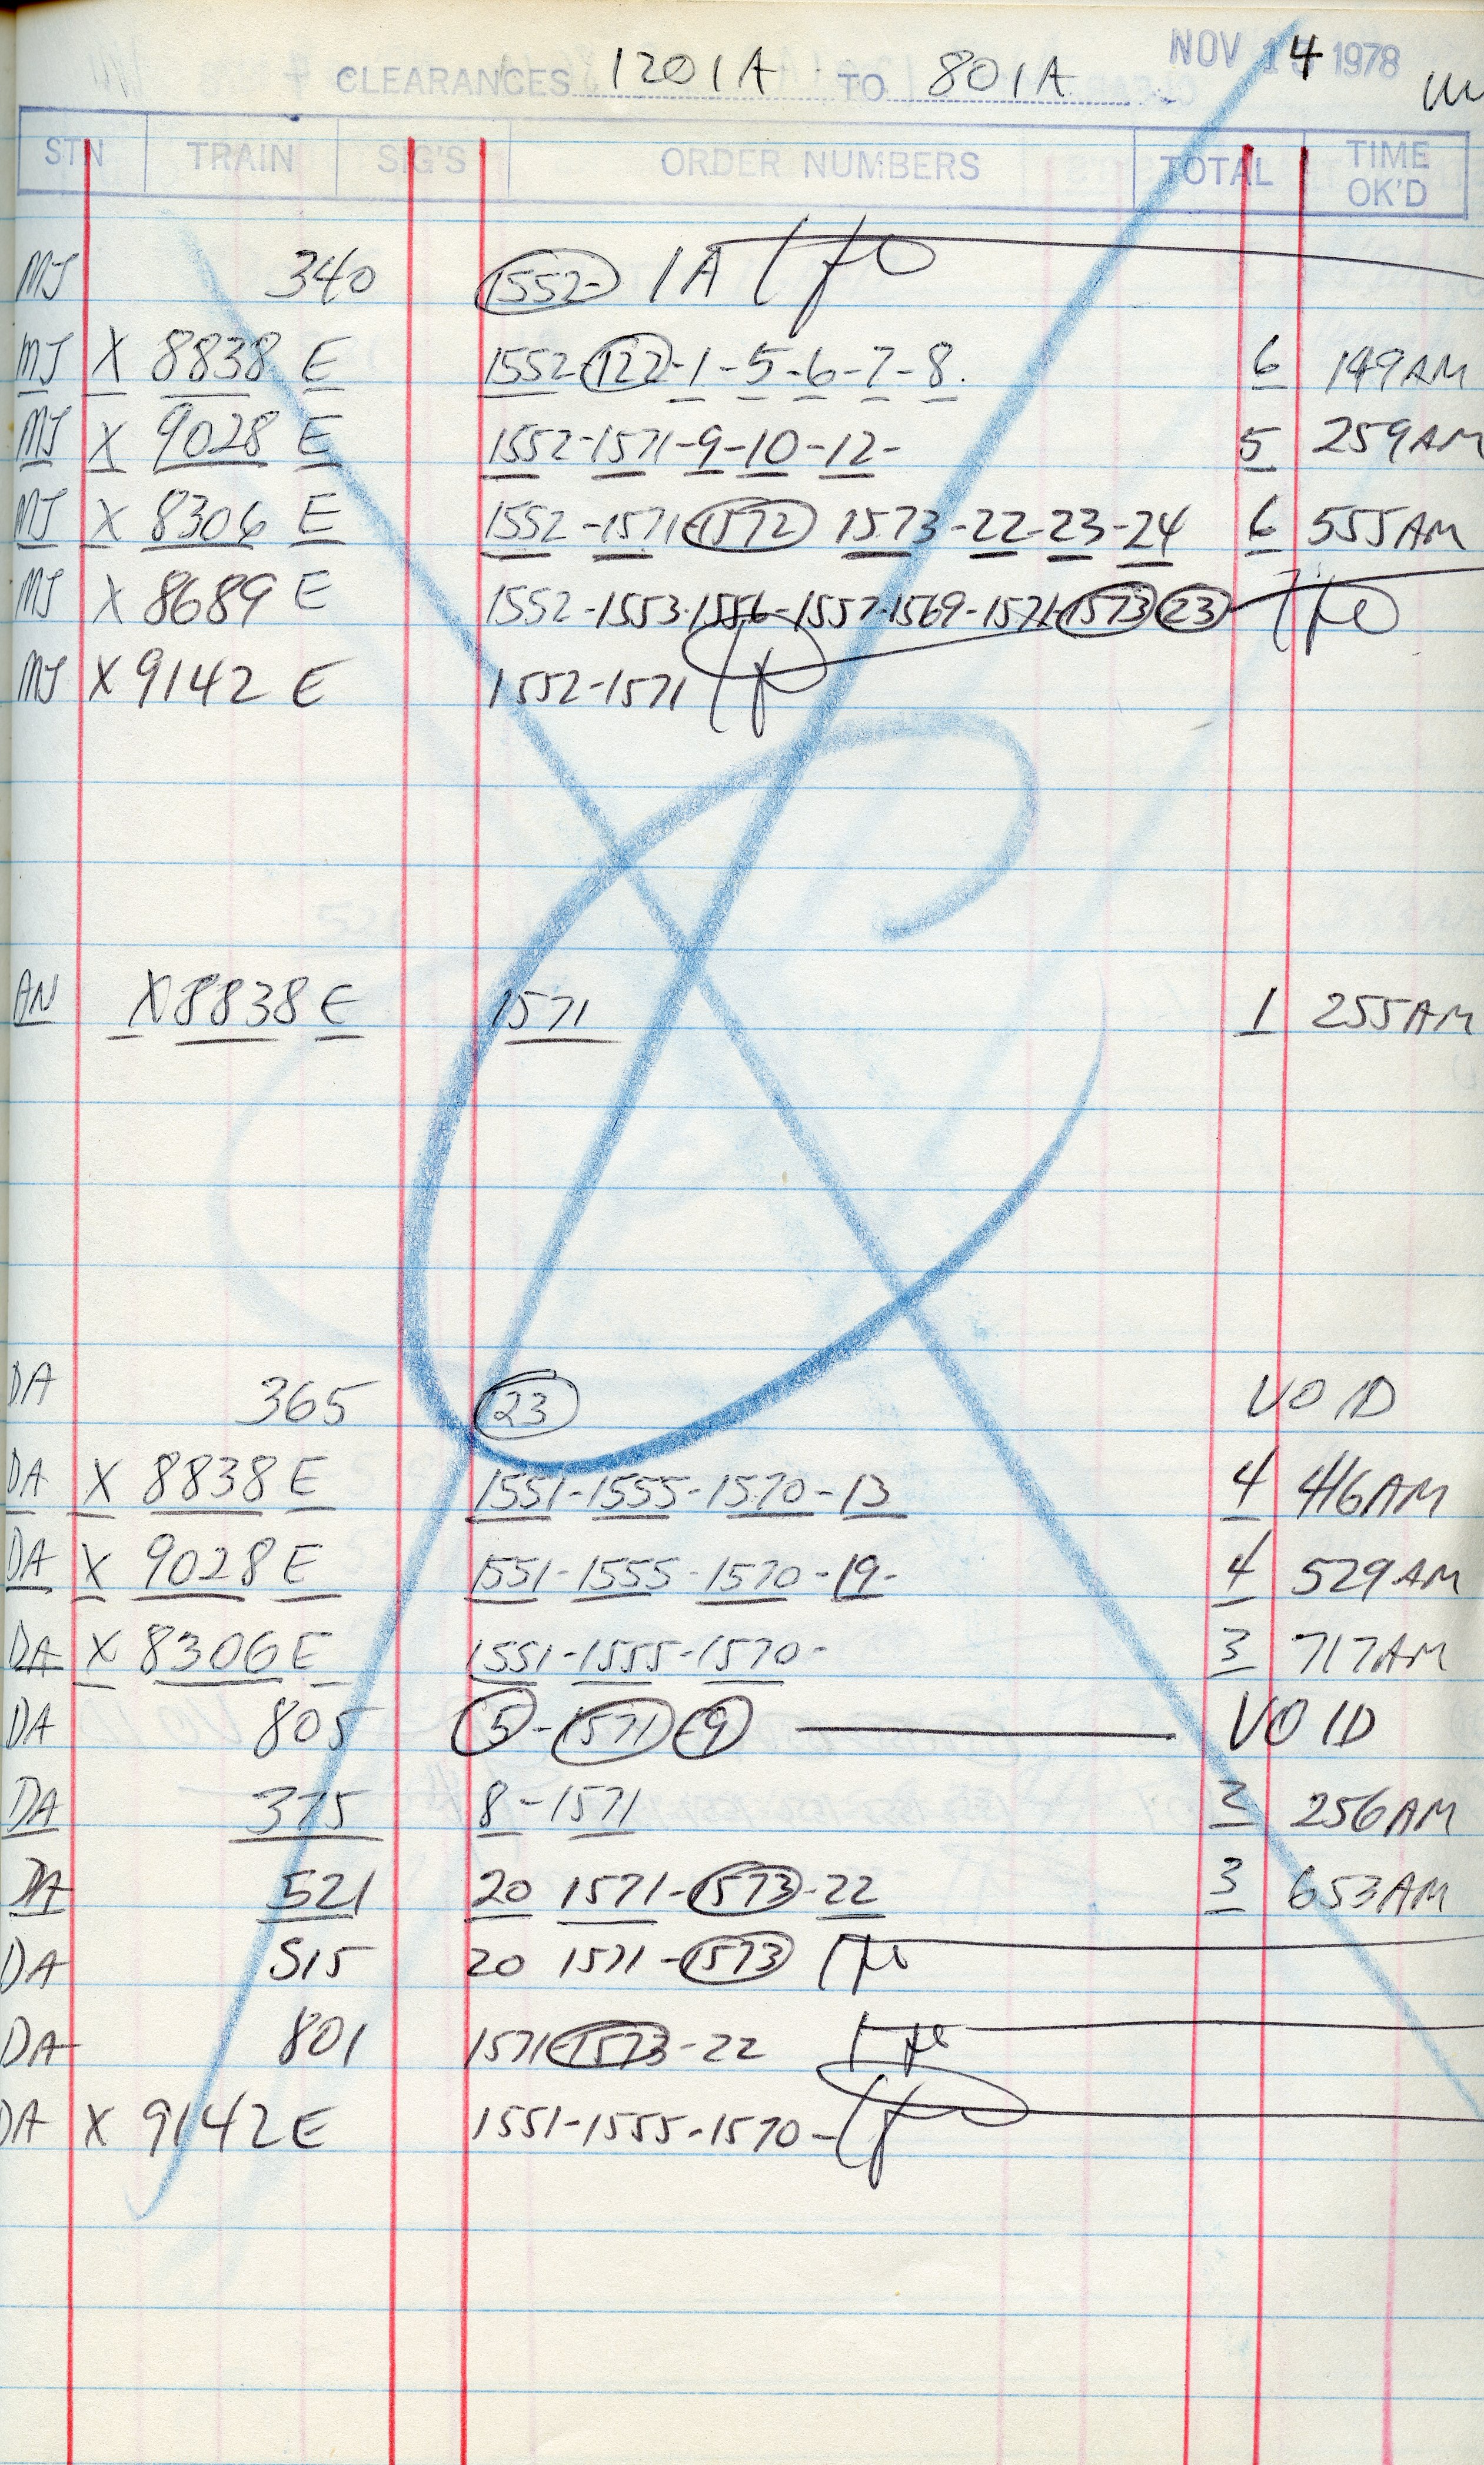 NOV 14 1978
CLEARANCES 1201A TO 801A
STN TRAIN SIG'S ORDER NUMBERS TOTAL TIME OK'D
MJ 340 1552- 1A
MJ X 8838 E 1552-122-1-5-6-7-8. 6 149AM
MJ X 9028 E 1552-1571-9-10-12- 5 259AM
MJ X 8306 E 1552-1571-1572 1573-22-23-24 6 555AM
MJ X 8689 E 1552-1553-1556-1557-1569-1571-1573 23
MJ X 9142 E 1552-1571
AN X 8838 E 1571 1 255AM
DA 365 23 VOID
DA X 8838 E 1551-1555-1570-13 4 416AM
DA X 9028 E 1551-1555-1570-19- 4 529AM
DA X 8306 E 1551-1555-1570- 3 717AM
DA 805 5-1571-9 VOID
DA 375 8-1571 2 256AM
DA 521 20 1571-1573-22 3 653AM
DA 515 20 1571-1573
DA 801 1571-1573-22
DA X 9142 E 1551-1555-1570-